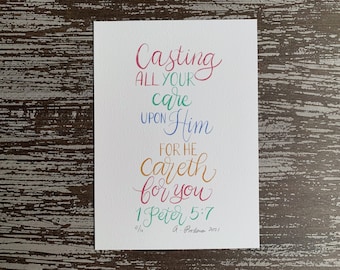 Casting
ALL YOUR
care
UPON Him
FOR HE
careth
for you
1 Peter 5:7